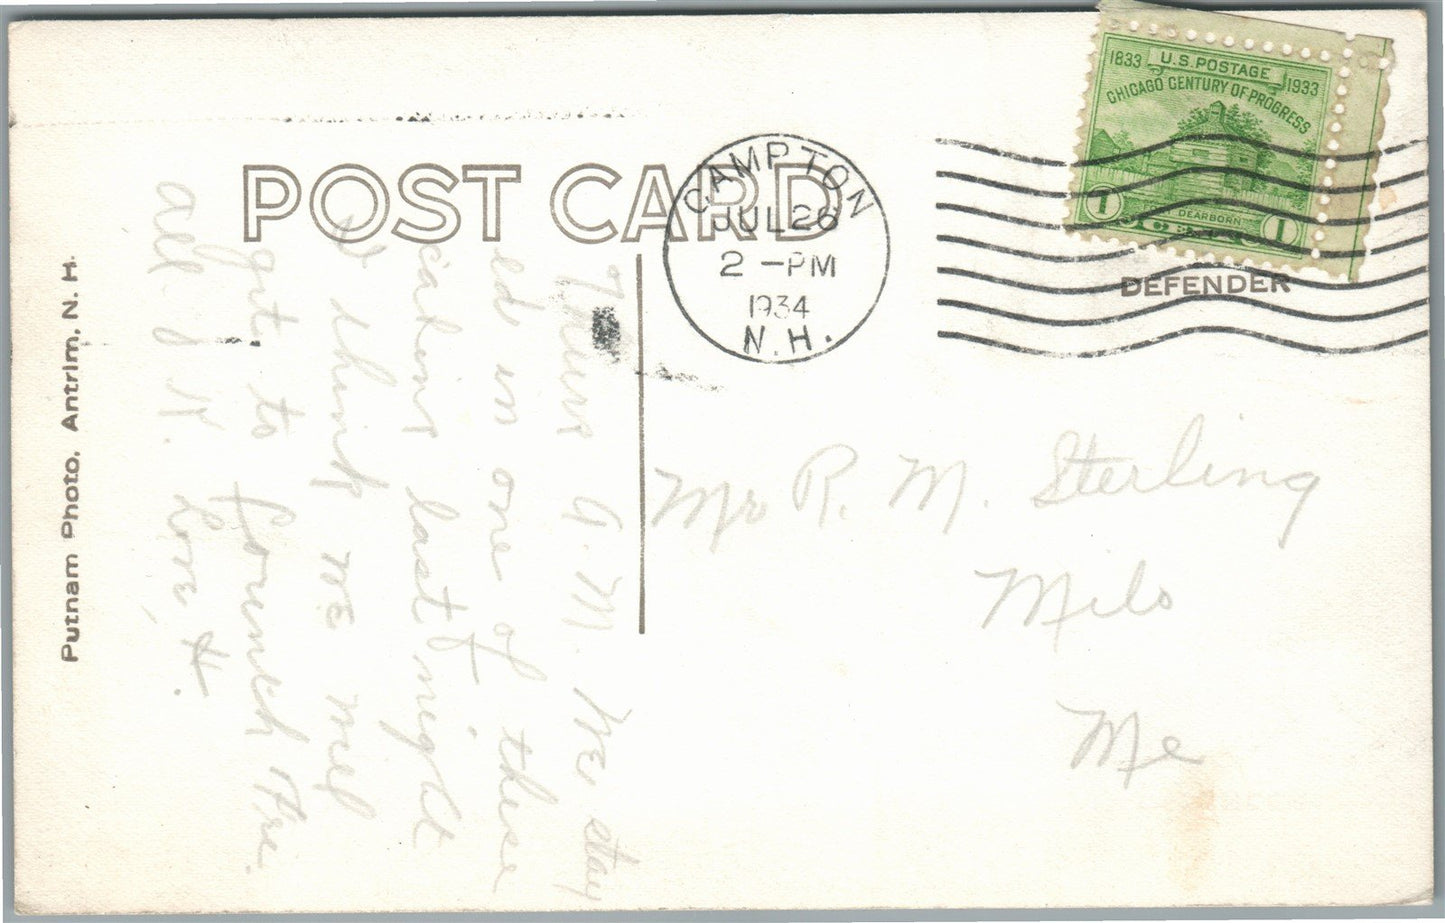 POST CARD
CAMPTON
JUL 26
2 -PM
1934
N.H.
1833 U.S. POSTAGE 1933
CHICAGO CENTURY OF PROGRESS
FT. DEARBORN
1 1
DEFENDER
Thurs A.M. We stay
ed in one of these
cabins last night
I think we will
get to
all O.K. Love, H.
Mr R. M. Sterling
Milo
Me
Putnam Photo, Antrim, N. H.